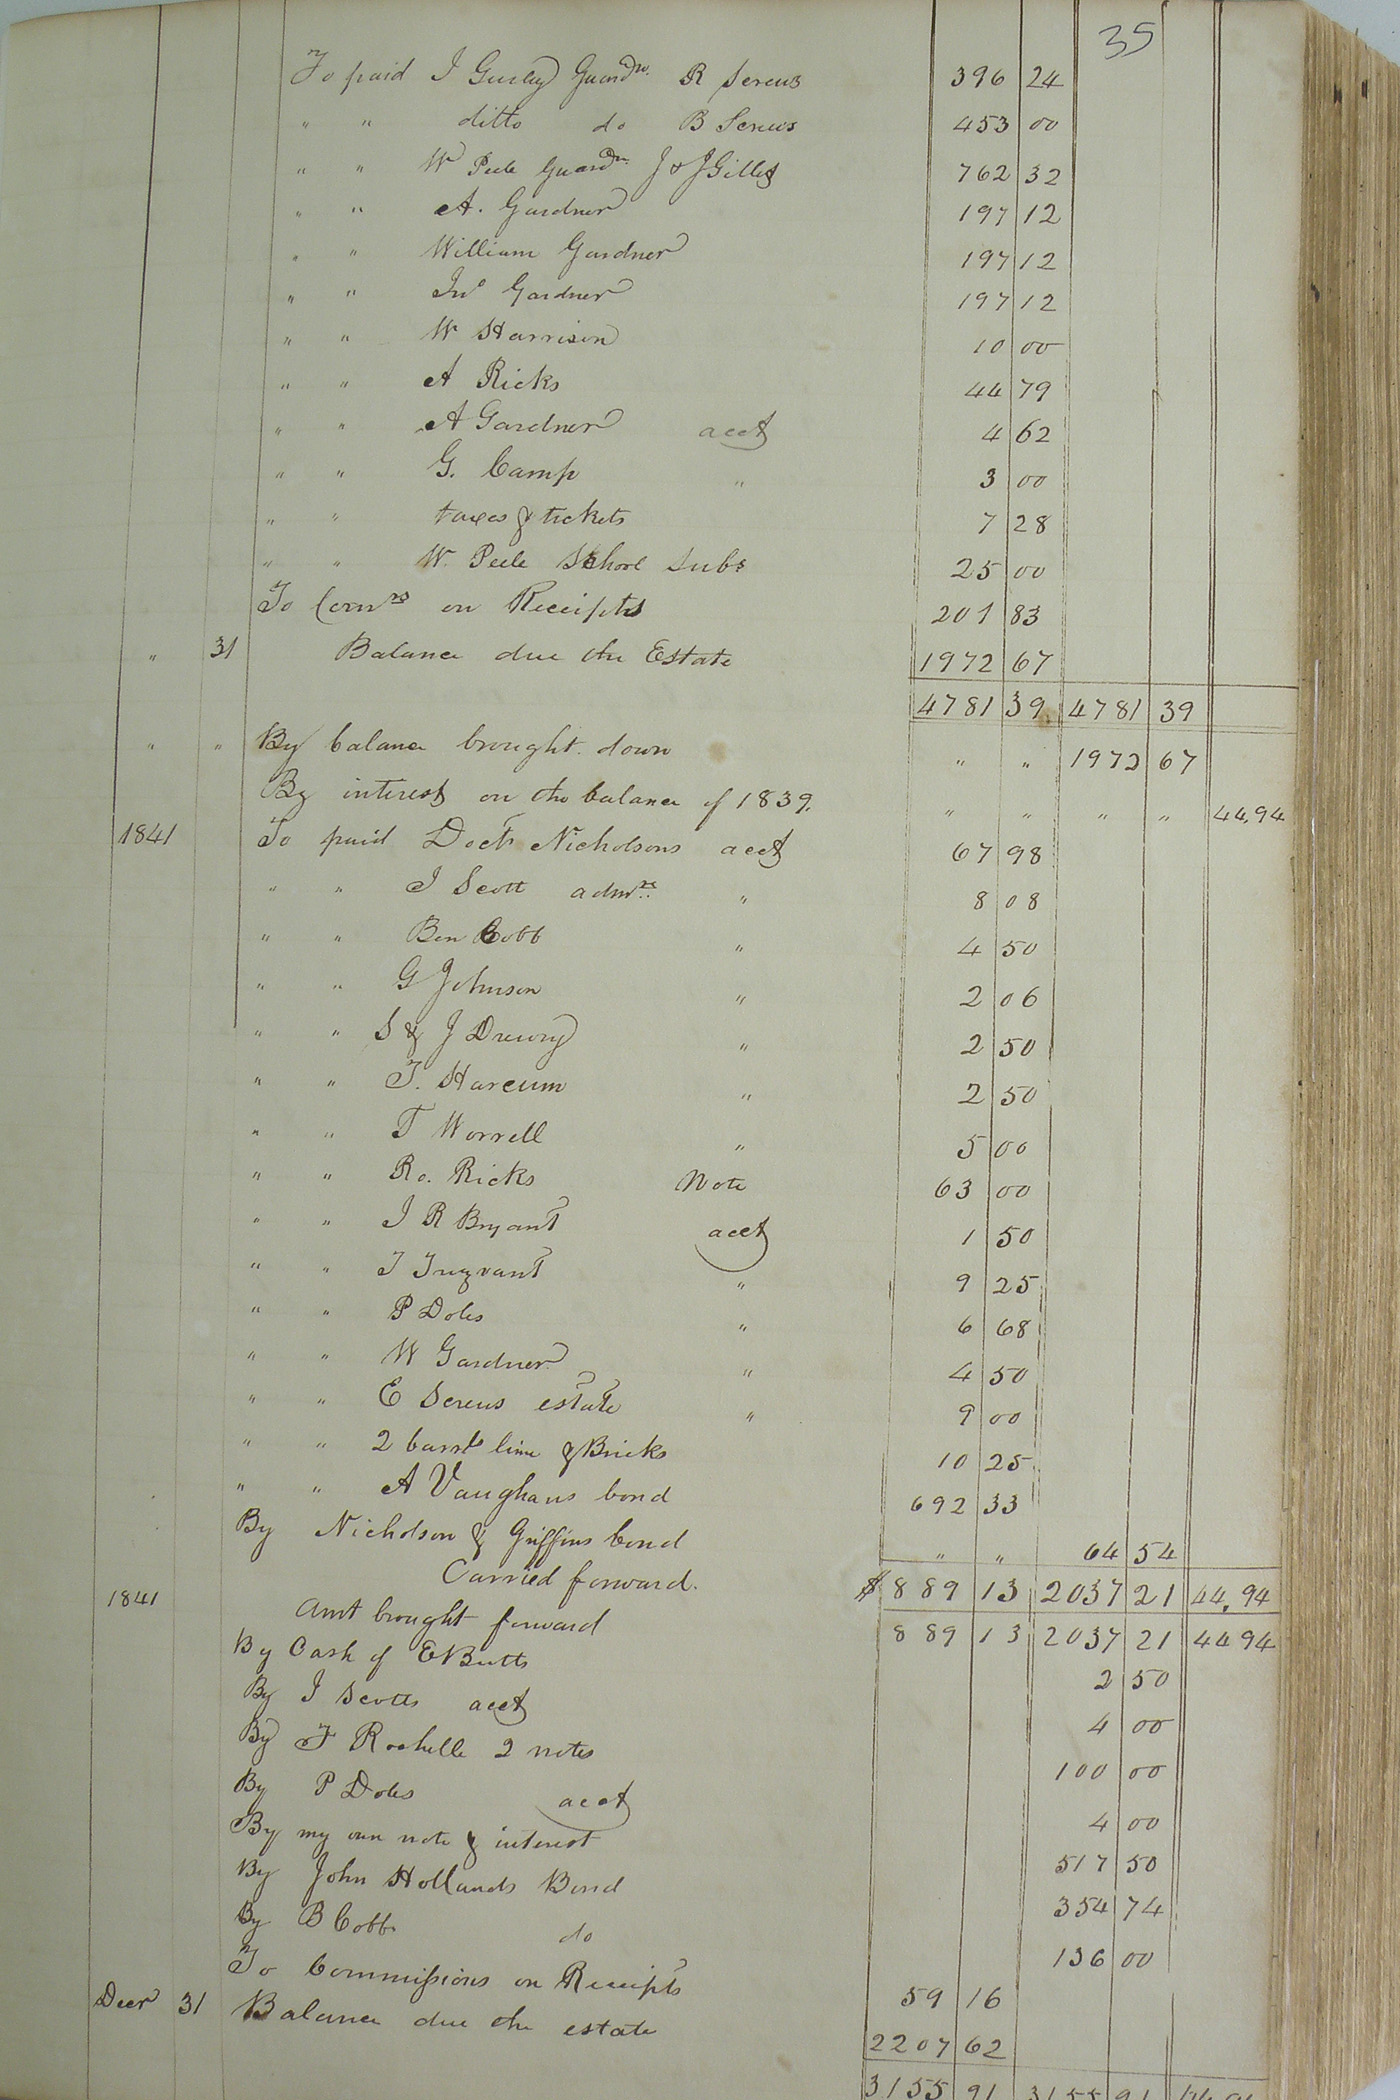 35
To paid J Gurley Guardn. R Screws 396 24
" " ditto do B Screws 453 00
" " W Peele Guardn. J & J Gillet 762 32
" " A. Gardner 197 12
" " William Gardner 197 12
" " Jno Gardner 197 12
" " W Harrison 10 00
" " A Ricks 44 79
" " A Gardner acct 4 62
" " G. Camp " 3 00
" " taxes & tickets 7 28
" " W. Peele School Subs 25 00
To Comns on Receipts 201 83
" 31 Balance due the Estate 1972 67
4781 39 4781 39
" " By balance brought down " " 1972 67
By interest on the balance of 1839. " " " " 44.94
1841 To paid Doctr Nicholsons acct 67 98
" " J Scott admr. " 8 08
" " Ben Cobb " 4 50
" " G Johnson " 2 06
" " S & J Drewry " 2 50
" " T. Harcum " 2 50
" " T Worrell " 5 00
" " Ro. Ricks Note 63 00
" " J R Bryant acct 1 50
" " J " 9 25
" " P Doles " 6 68
" " W Gardner " 4 50
" " E Screws estate " 9 00
" " 2 barrls lime & Bricks 10 25
" " A Vaughans bond 692 33
By Nicholson & Griffins bond " " 64 54
Carried forward. $ 889 13 2037 21 44.94
1841 Amt brought forward 889 13 2037 21 44 94
By Cash of E Butts 2 50
By J Scotts acct 4 00
By F Rochelle 2 notes 100 00
By P Doles acct 4 00
By my own note & interest 517 50
By John Hollands Bond 354 74
By B Cobb do 136 00
To Commissions on Receipts 59 16
Decr 31 Balance due the estate 2207 62
3155 91 3155 91